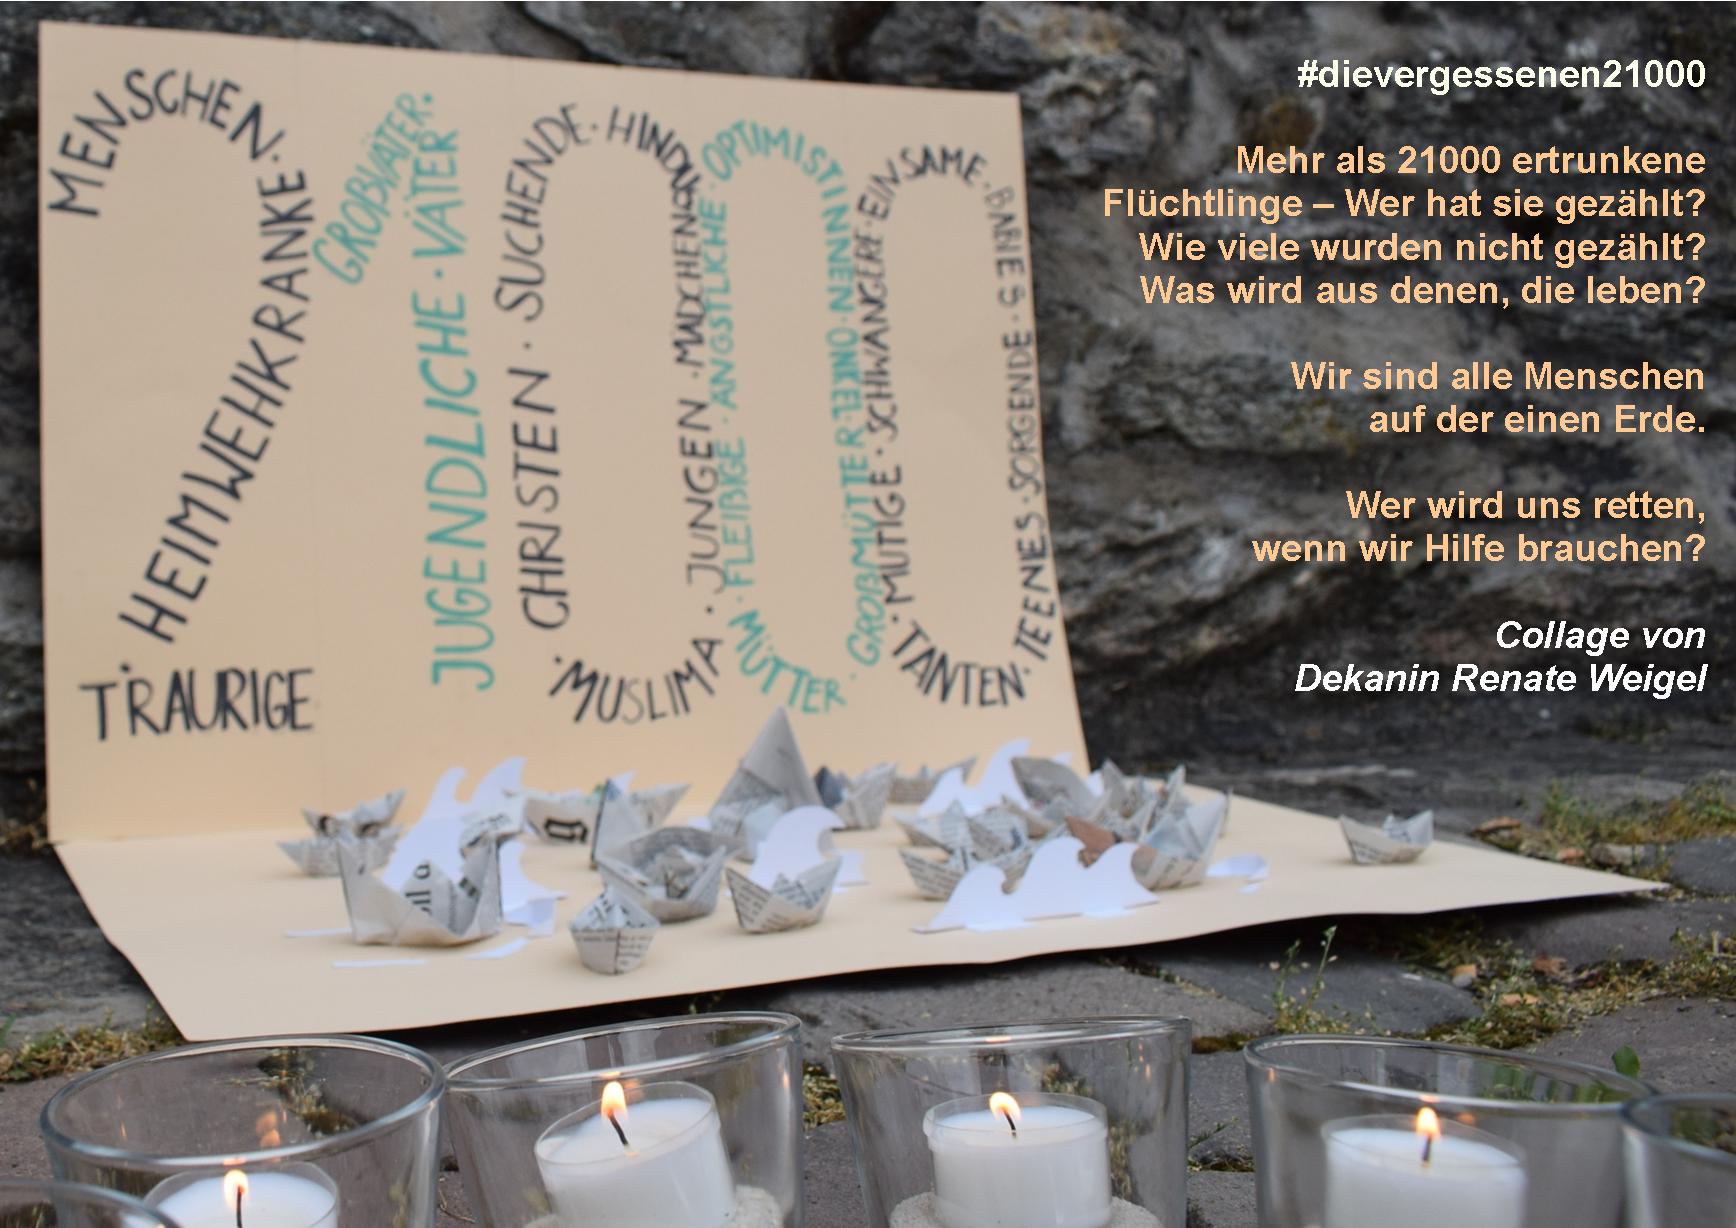 #dievergessenen21000
Mehr als 21000 ertrunkene
Flüchtlinge – Wer hat sie gezählt?
Wie viele wurden nicht gezählt?
Was wird aus denen, die leben?
Wir sind alle Menschen
auf der einen Erde.
Wer wird uns retten,
wenn wir Hilfe brauchen?
Collage von
Dekanin Renate Weigel
MENSCHEN · HEIMWEHKRANKE · TRAURIGE
GROßVÄTER.
JUGENDLICHE · VÄTER
MUSLIMA · CHRISTEN · SUCHENDE · HINDUS
JUNGEN · MÄDCHEN
MÜTTER · FLEIßIGE · ÄNGSTLICHE · OPTIMISTINNEN · ONKEL
GROßMÜTTER
TANTEN · MUTIGE · SCHWANGERE · EINSAME · BABIES · SORGENDE · TEENIES
g